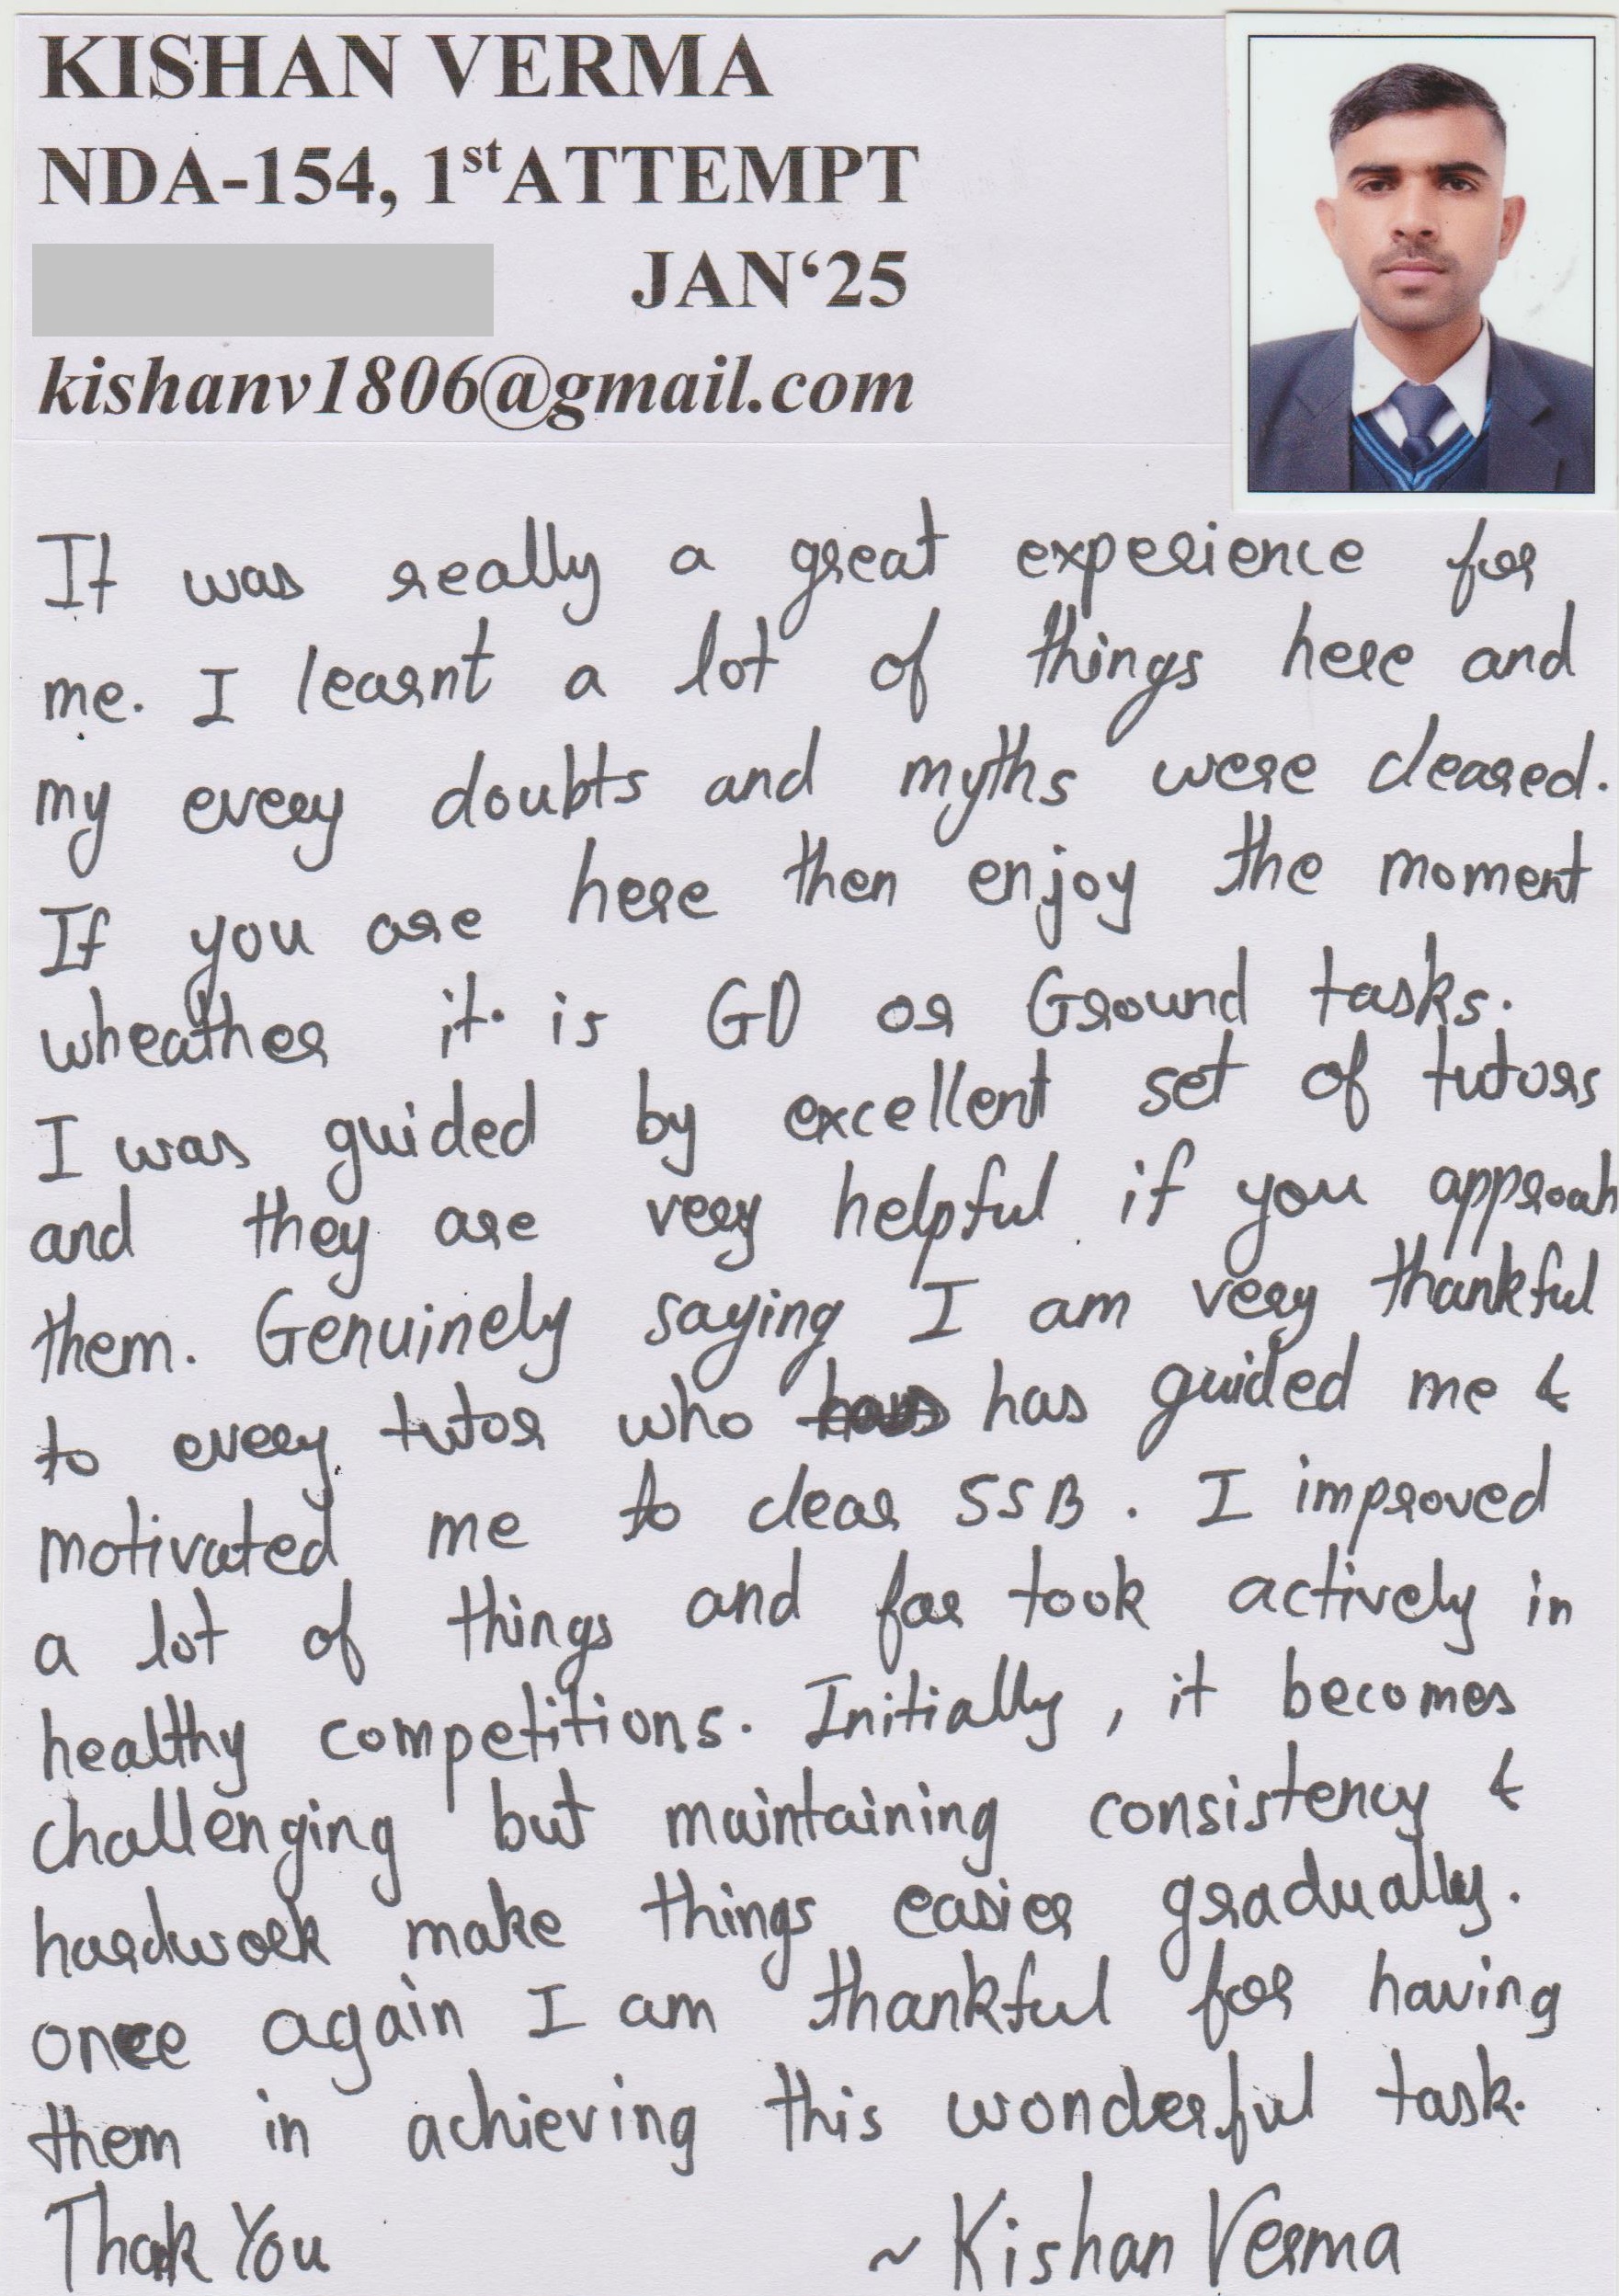 KISHAN VERMA
NDA-154, 1st ATTEMPT
JAN‘25
kishanv1806@gmail.com
It was really a great experience for
me. I learnt a lot of things here and
my every doubts and myths were cleared.
If you are here then enjoy the moment
wheather it is GD or Ground tasks.
I was guided by excellent set of tutors
and they are very helpful if you approah
them. Genuinely saying I am very thankful
to every tutor who has guided me &
motivated me to clear SSB. I improved
a lot of things and far took actively in
healthy competitions. Initially, it becomes
challenging but maintaining consistency &
hardwork make things easier gradually.
once again I am thankful for having
them in achieving this wonderful task.
Thank You ~ Kishan Verma